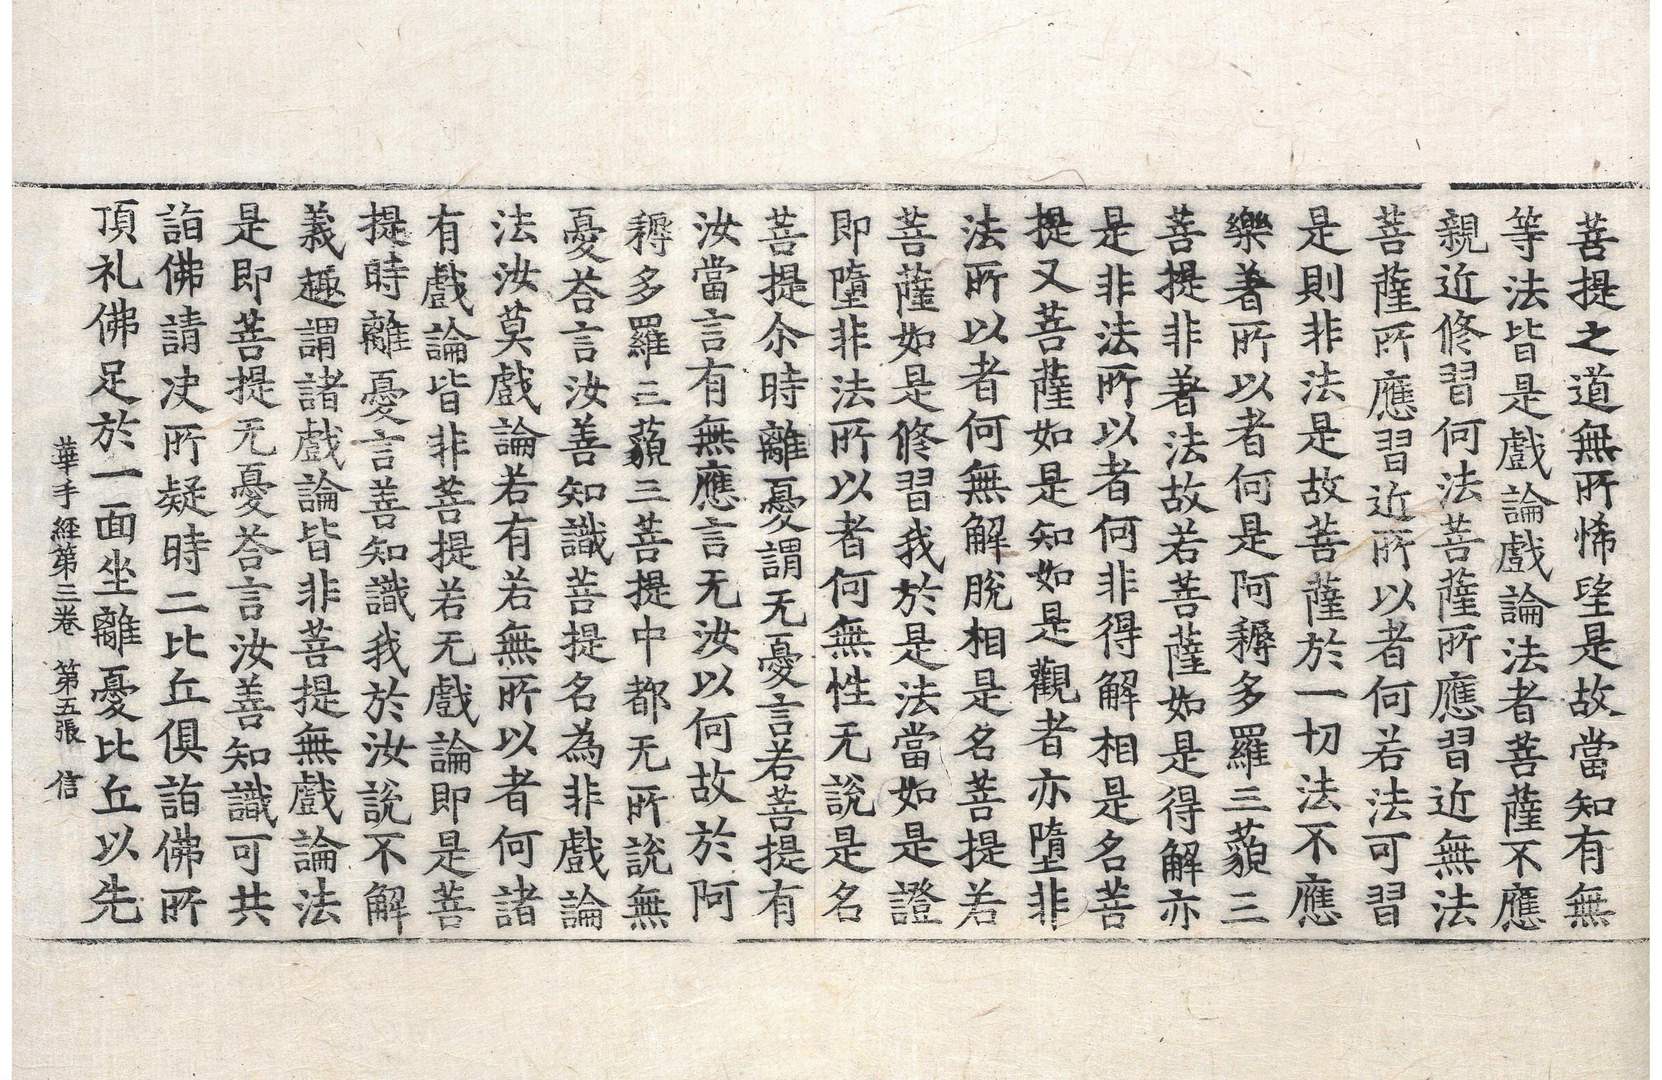 菩提之道無所悕望是故當知有無
等法皆是戲論戲論法者菩薩不應
親近修習何法菩薩所應習近無法
菩薩所應習近所以者何若法可習
是則非法是故菩薩於一切法不應
樂著所以者何是阿耨多羅三藐三
菩提非著法故若菩薩如是得解亦
是非法所以者何非得解相是名菩
提又菩薩如是知如是觀者亦墮非
法所以者何無解脫相是名菩提若
菩薩如是修習我於是法當如是證
即墮非法所以者何無性无說是名
菩提尒時離憂謂无憂言若菩提有
汝當言有無應言无汝以何故於阿
耨多羅三藐三菩提中都无所說無
憂荅言汝善知識菩提名為非戲論
法汝莫戲論若有若無所以者何諸
有戲論皆非菩提若无戲論即是菩
提時離憂言善知識我於汝說不解
義趣謂諸戲論皆非菩提無戲論法
是即菩提无憂荅言汝善知識可共
詣佛請决所疑時二比丘俱詣佛所
頂礼佛足於一面坐離憂比丘以先
華手經第三卷 第五張 信